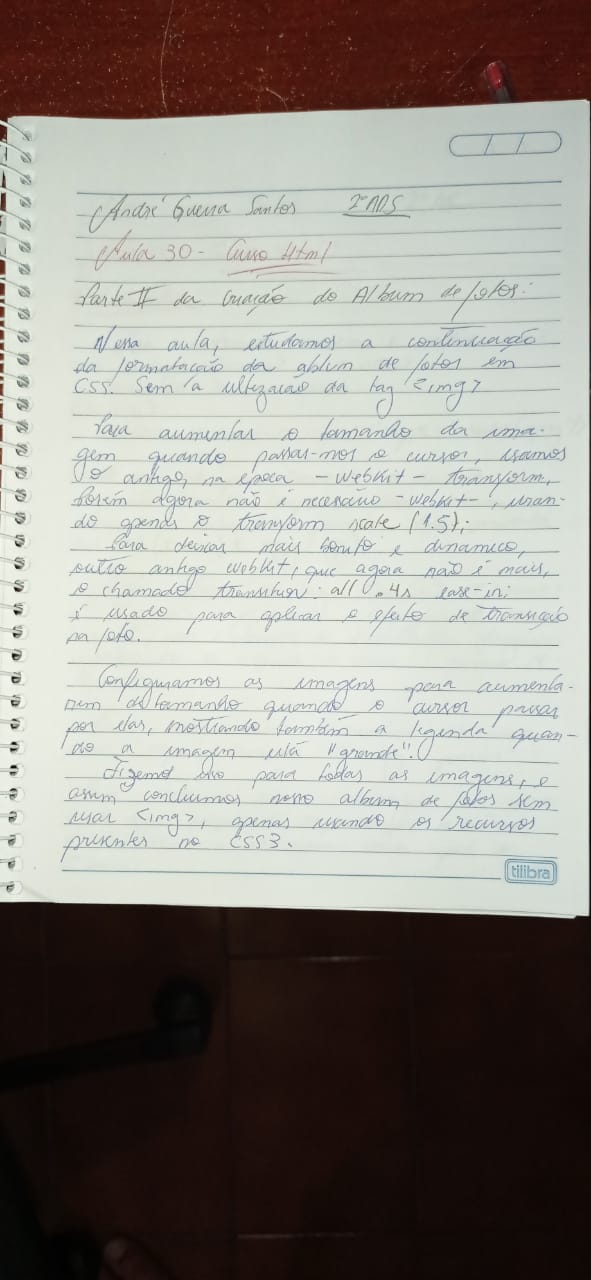 André Guerra Santos 2º ADS
Aula 30 - Curso Html
Parte II da criação do Album de fotos:
Nessa aula, estudamos a continuação
da formatacão da ablum de fotos em
CSS. Sem a ultizacão da tag <img>
Para aumentar o tamando da ima-
gem quando passar-mos o cursor, usamos
o antigo, na época -webkit- transform,
Porém agora não é necessário -webkit-, usan-
do apenas o transform scale (1.5);
Para deixar mais bonito e dinamico,
outro antigo webkit, que agora não é mais,
o chamado transition: all 0.4s ease-in;
é usado para aplicar o efeito de transição
na foto.
Configuramos as imagens para aumenta-
rem de tamando quando o cursor passar
por elas, mostrando também a legenda quan-
do a imagem está "grande".
Fizemos isso para todas as imagens, e
assim concluimos nosso album de fotos sem
usar <img>, apenas usando os recursos
presentes no CSS3.
tilibra